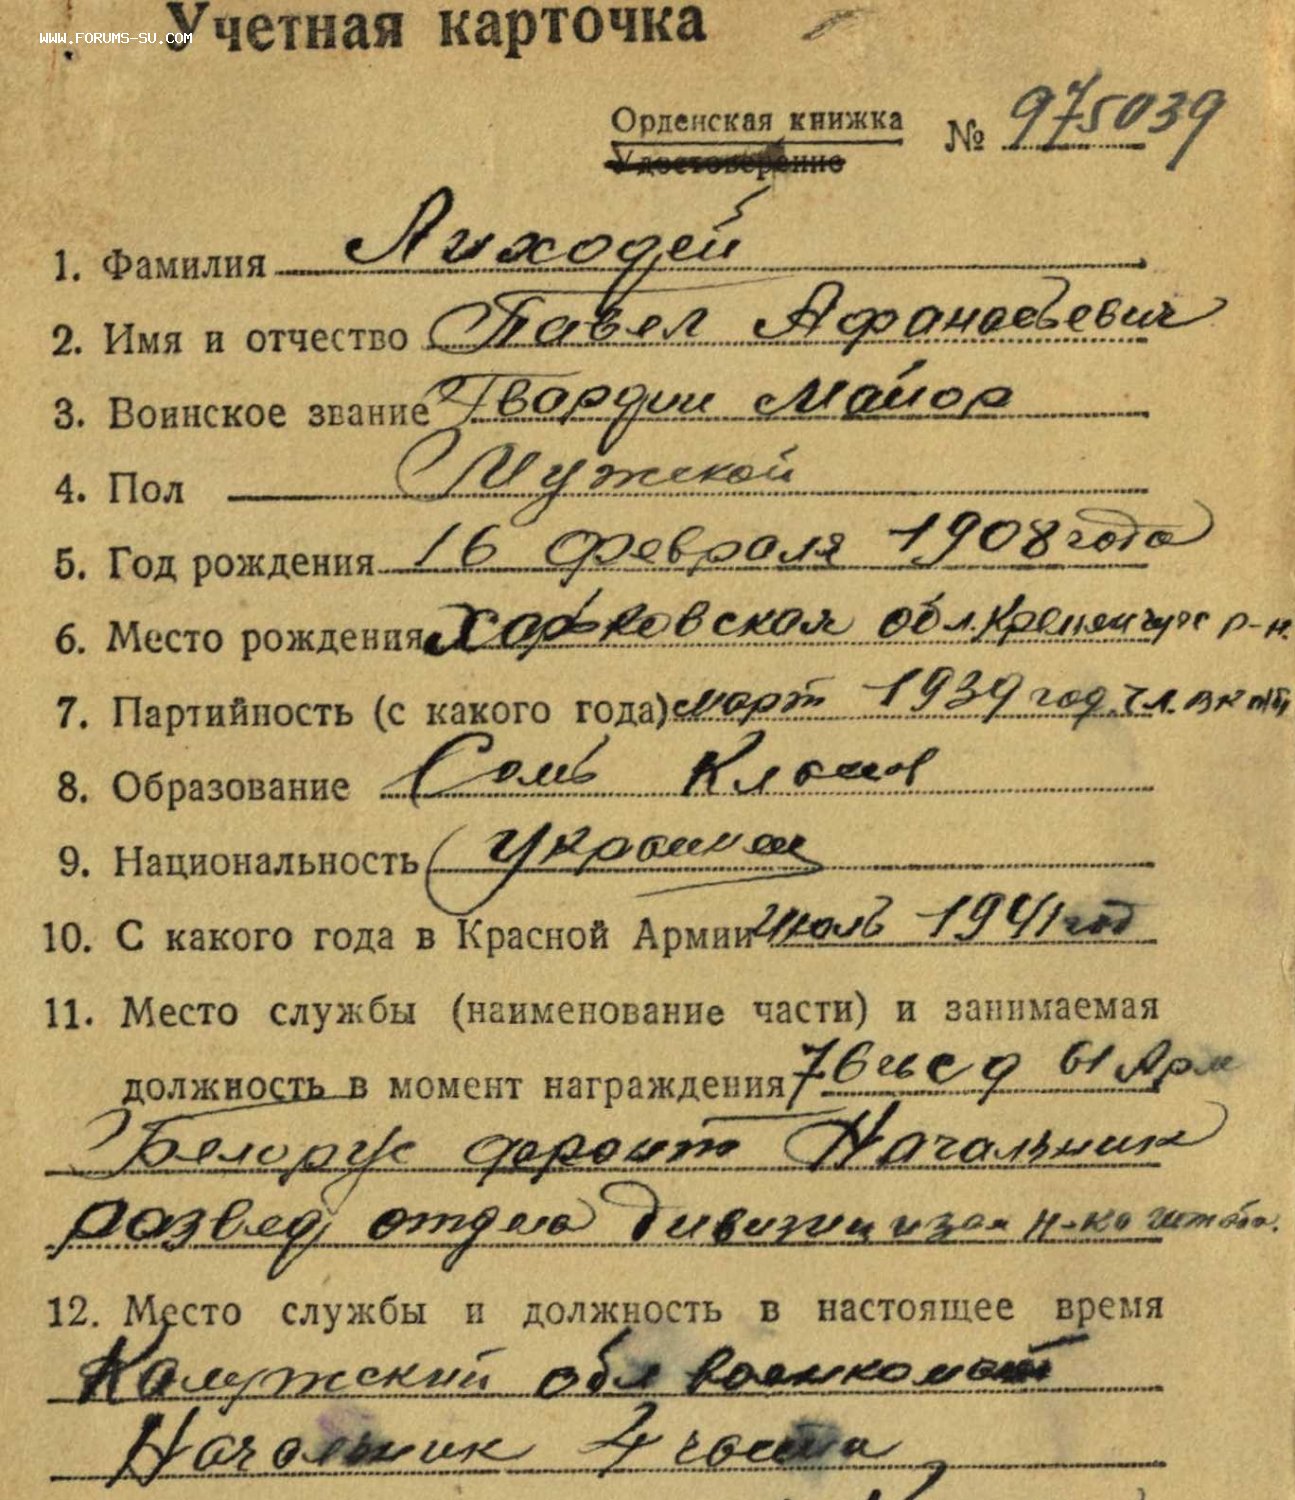 Учетная карточка
WWW.FORUMS-SU.COM
Орденская книжка № 975039
Удостоверение
1. Фамилия Лиходей
2. Имя и отчество Павел Афанасьевич
3. Воинское звание Гвардии Майор
4. Пол Мужской
5. Год рождения 16 февраля 1908 года
6. Место рождения Харьковская обл. Кременчуг р-н.
7. Партийность (с какого года) март 1939 год. чл.
8. Образование Семь Класов
9. Национальность Украинец
10. С какого года в Красной Армии Июль 1941 год
11. Место службы (наименование части) и занимаемая
должность в момент награждения 76 гвсд 61 Арм
Белорус фронт Начальник
развед отдела дивизии и зам н-ка штаба.
12. Место службы и должность в настоящее время
Калужский обл военкомат
Начальник 4 части